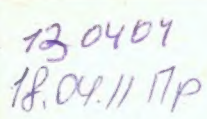 130404
18.04.11 Пр